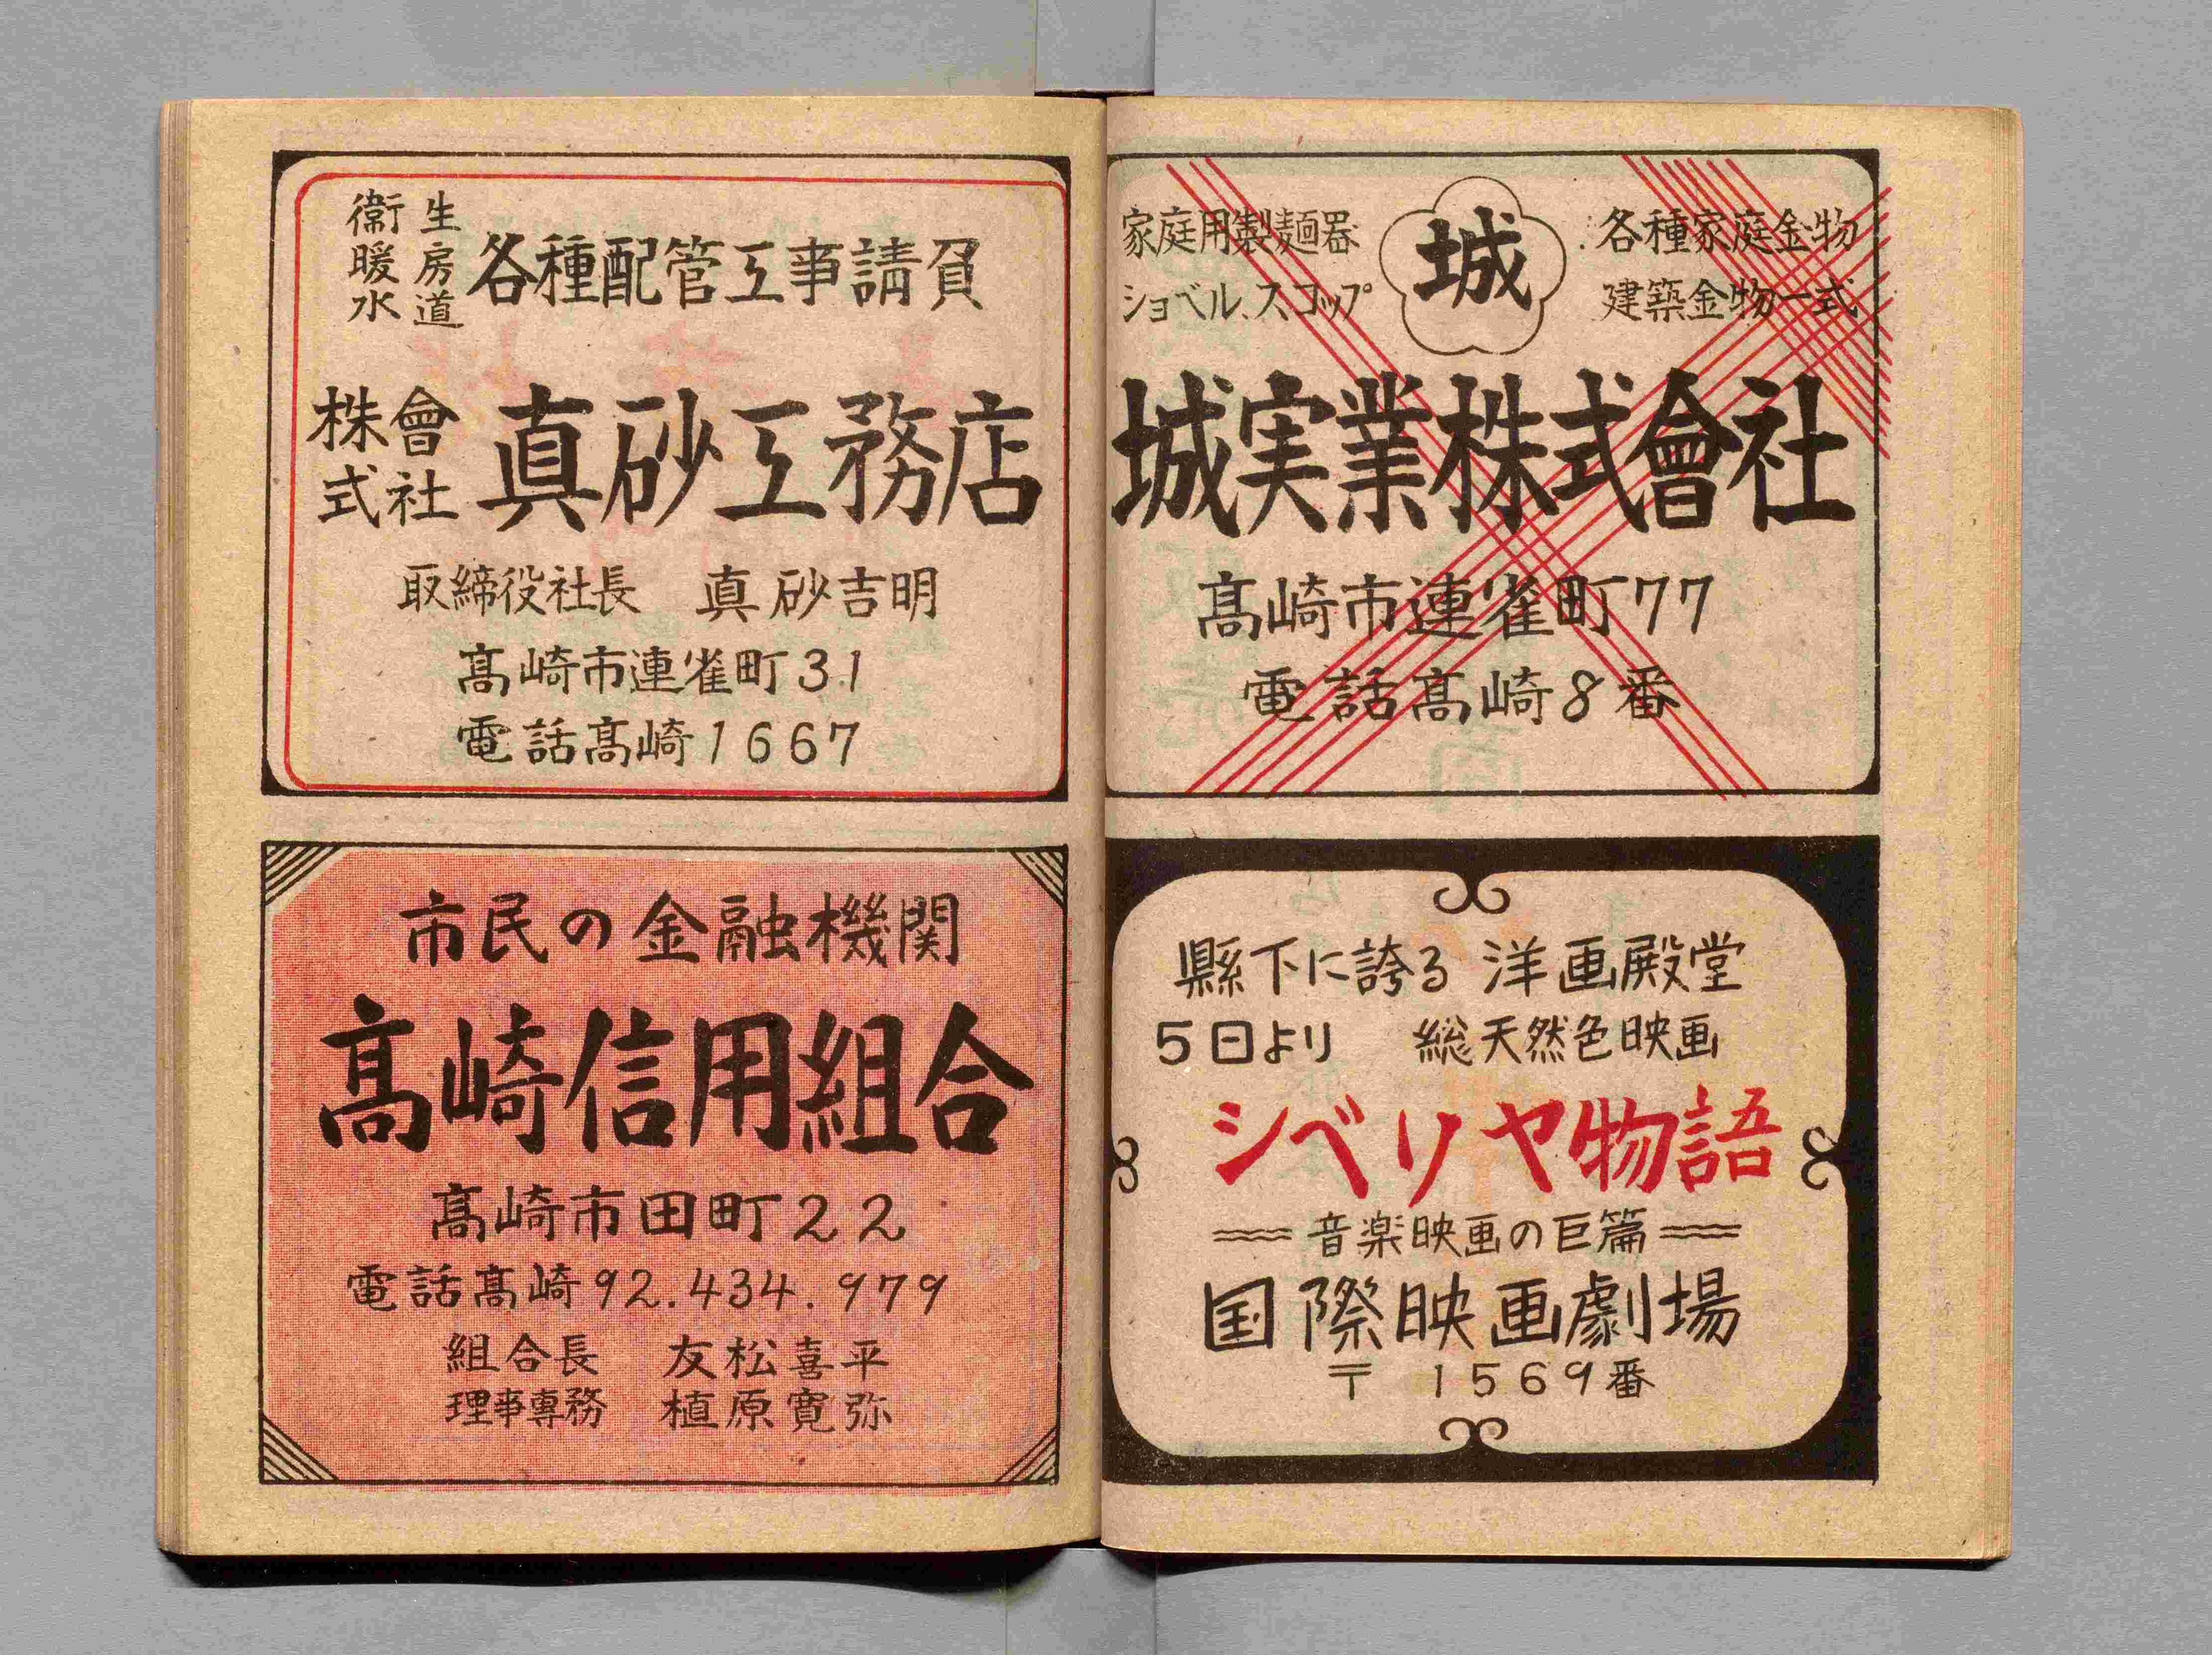 衞生
暖房
水道
各種配管工事請負
株式會社
真砂工務店
取締役社長 真砂吉明
髙崎市連雀町31
電話髙崎1667
市民の金融機関
髙崎信用組合
髙崎市田町22
電話髙崎92.434.979
組合長 友松喜平
理事専務 植原寛弥
家庭用製麺器
ショベル、スコップ
城
各種家庭金物
建築金物一式
城実業株式會社
髙崎市連雀町77
電話髙崎8番
縣下に誇る 洋画殿堂
5日より 総天然色映画
シベリヤ物語
音楽映画の巨篇
国際映画劇場
〒 1569番